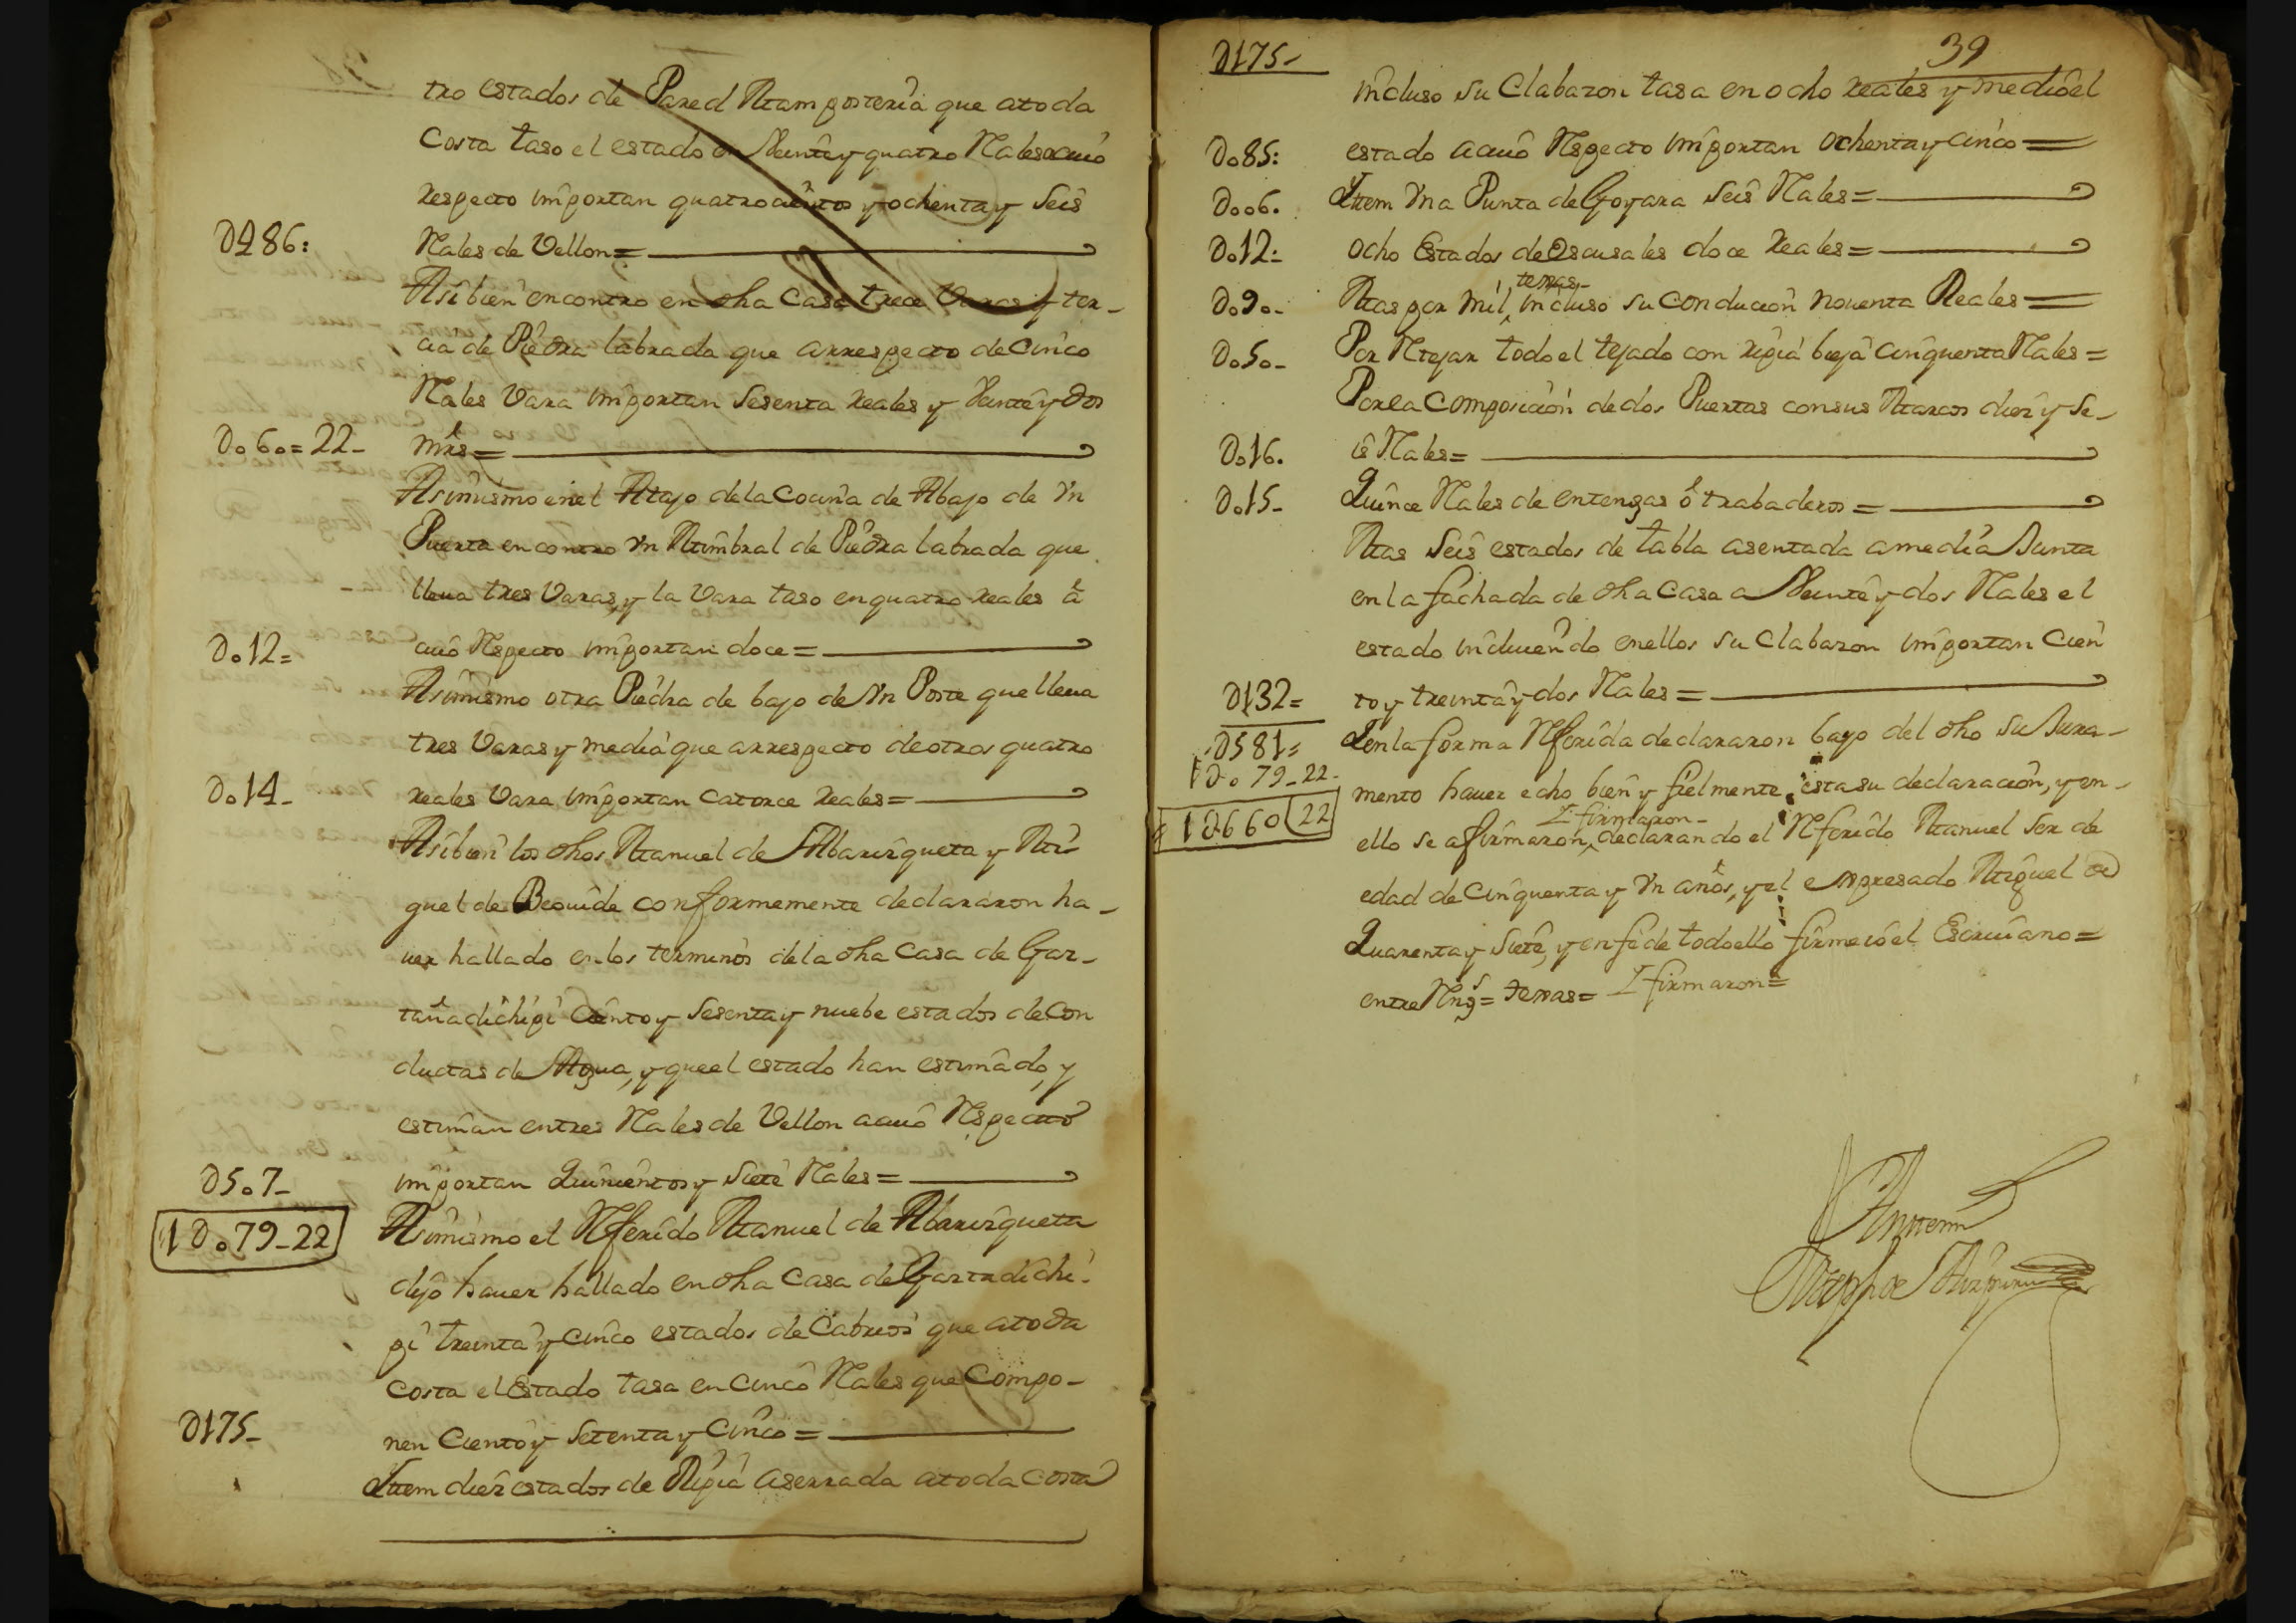 tro estados de Pared Mamposteria que atoda
Costa taso el estado en Veinte y quatro Rales acuio
respecto importan quatrocientos y ochenta y Seis
D486: Rales de Vellon=
Asi bien encontro en dha Casa trece Varas y ter-
cia de Piedra labrada que arrespecto de Cinco
Rales Vara importan Sesenta reales y Veinte y dos
Do6o=22- mrs=
Asimismo en el Atajo de la Cocina de Abajo de Vn
Puerta encontro Vn Umbral de Piedra labrada que
lleua tres Varas, y la Vara taso en quatro reales á
Do12= cuio Respecto importan doce=
Asimismo otra Piedra de bajo de Vn Poste que lleua
tres Varas y media que arrespecto de otros quatro
Do14- reales Vara importan catorce reales=
Asi bien los dhos Manuel de Abarizqueta y Mi
guel de Beouide conformemente declararon ha-
uer hallado en los terminos de la dha Casa de Gaz-
tañadichipi Ciento y Sesenta y nuebe estados de Con
ductas de Agua, y que el estado han estimado, y
estiman entres Rales de Vellon acuio Respecto
D5o7- importan Quinientos y Siete Rales=
1Do79-22 Asimismo el Referido Manuel de Abarizqueta
dijo hauer hallado en dha Casa de Gaztadichi-
pi treinta y cinco estados de Cabrios que atoda
costa el Estado tasa en Cinco Rales que Compo-
D175- nen Ciento y Setenta y Cinco=
Ittem diez estados de Ripia aserrada atoda costa
D175- 39
incluso su Clabazon tasa en ocho reales y medio el
Do85: estado acuio Respecto importan ochenta y cinco=
Doo6. Ittem Vna Punta de Goyara Seis Rales=
Do12: ocho Estados de Oscusales doce reales=
tejas-
Do9o- Mas por mil, incluso su Conducion nouenta Reales=
Do5o- Por Retejar todo el tejado con ripia bieja cinquenta Rales=
Por la Composicion de dos Puertas con sus Marcos diez y Se-
Do16. is Rales=
Do15- Quince Rales de entengas ó trabaderos=
Mas Seis estados de tabla asentada amedia Junta
en la fachada de dha Casa a Veinte y dos Rales el
estado incluiendo en ellos su Clabazon importan Cien
D132= to y treinta y dos Rales=
D581= Y en la forma Referida declararon bajo del dho su Jura-
1Do79-22- mento hauer echo bien y fielmente esta su declaracion, y en-
Y firmaron-
1D660 22 ello se afirmaron, declarando el Referido Manuel ser de
edad de cinquenta y Vn años, y el expresado Miguel de
Quarenta y Siete, y en fe de todo ello firme io el Escriuano=
entre Rengs= tejas= Y firmaron=
Antemi